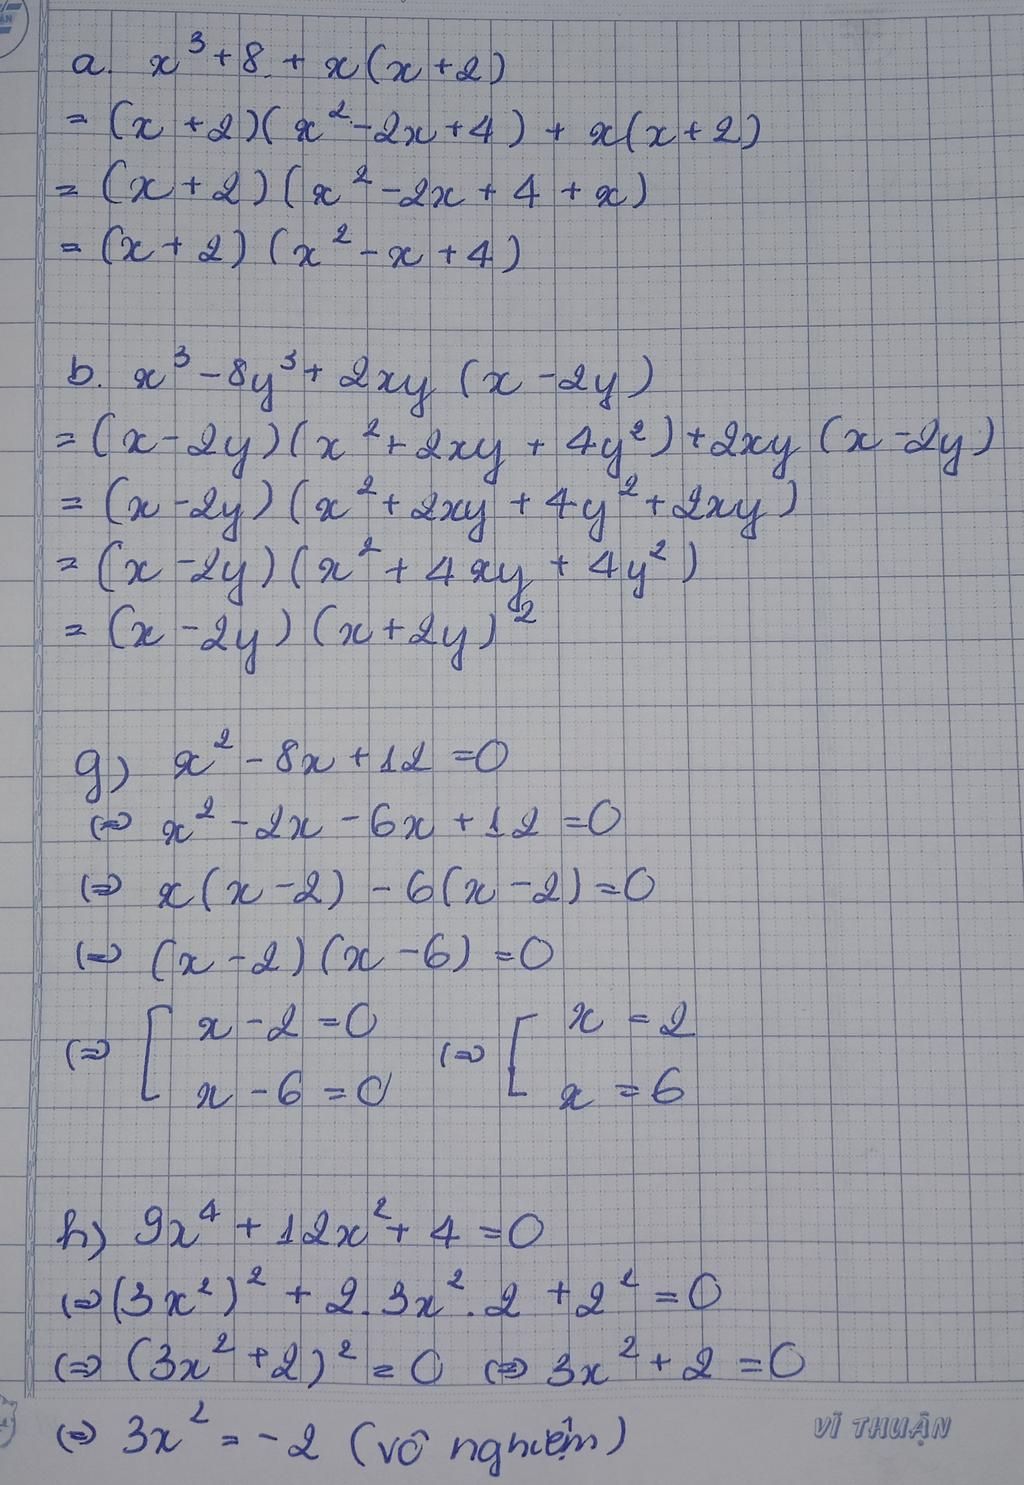 a. x³ + 8 + x(x + 2)
= (x + 2)(x² - 2x + 4) + x(x + 2)
= (x + 2)(x² - 2x + 4 + x)
= (x + 2)(x² - x + 4)
b. x³ - 8y³ + 2xy (x - 2y)
= (x - 2y)(x² + 2xy + 4y²) + 2xy (x - 2y)
= (x - 2y)(x² + 2xy + 4y² + 2xy)
= (x - 2y)(x² + 4xy + 4y²)
= (x - 2y)(x + 2y)²
g) x² - 8x + 12 = 0
⇔ x² - 2x - 6x + 12 = 0
⇔ x(x - 2) - 6(x - 2) = 0
⇔ (x - 2)(x - 6) = 0
⇔ [ x - 2 = 0 ⇔ [ x = 2
x - 6 = 0 x = 6
h) 9x⁴ + 12x² + 4 = 0
⇔ (3x²)² + 2.3x².2 + 2² = 0
⇔ (3x² + 2)² = 0 ⇔ 3x² + 2 = 0
⇔ 3x² = -2 (vô nghiệm)
VĨ THUẬN